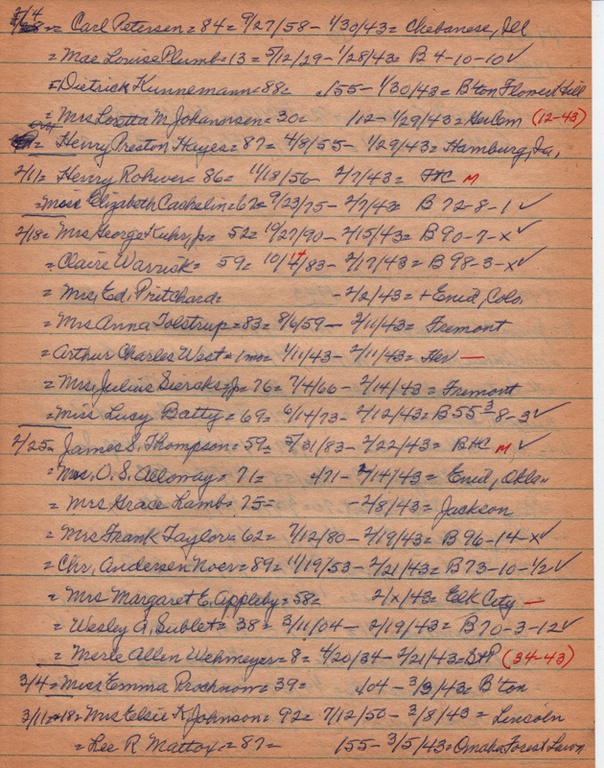 2/4 = Carl Petersen = 84 = 9/27/58 - 1/30/43 = Chebanese, Ill
= Mae Louise Plumb = 13 = 5/12/29 - 1/28/43 = B 4-10-10 ✓
= Dietrick Kunnemann = 88 = /55 - 1/30/43 = B'ton Flower Hill
= Mrs Loretta M. Johannsen = 30 = /12 - 1/29/43 = (12-43)
= Henry Preston Hayes = 87 = 4/8/55 - 1/29/43 = Hamburg, Ia,
2/11 = Henry Rohwer = 86 = 11/18/56 - 2/7/43 = M
= Miss Elizabeth Cachelin = 67 = 9/23/75 - 2/7/43 = B 72-8-1 ✓
2/18 = Mrs George Kuhr, Jr = 52 = 10/27/90 - 2/15/43 = B 90-7-x ✓
= Claire Warrick = 59 = 10/14/83 - 2/17/43 = B 98-3-x ✓
= Mrs, Ed, Pritchard = - 2/2/43 = + Enid, Colo,
= Mrs Anna Tolstrup = 83 = 8/6/59 - 2/11/43 = Fremont
= Arthur Charles West = 1 mo = 1/11/43 - 2/11/43 = —
= Mrs, Julius Siercks, Jr = 76 = 7/4/66 - 2/14/43 = Fremont
= Miss Lucy Batty = 69 = 6/14/73 - 2/12/43 = B 55-8-3 ✓
2/25 = James S. Thompson = 59 = 5/31/83 - 2/22/43 = M ✓
= Mrs, O. S. Alloway = 71 = /71 - 2/14/43 = Enid, Okla
= Mrs Grace Lamb = 75 = - 2/8/43 = Jackson
= Mrs Frank Taylor = 62 = 7/12/80 - 2/19/43 = B 96-14-x ✓
= Chr, Andersen Noer = 89 = 11/19/53 - 2/21/43 = B 73-10-1/2 ✓
= Mrs Margaret E. Appleby = 58 = 2/x/43 = Elk City —
= Wesley A, Sublet = 38 = 3/11/04 - 2/19/43 = B 70-3-12 ✓
= Merle Allen Wehmeyer = 8 = 4/20/34 - 2/21/43 = (34-43)
3/4 = Miss Emma Prochnow = 39 = /04 - 3/3/43 = B'ton
3/11-18 = Mrs Elsie K Johnson = 92 = 7/12/50 - 3/8/43 = Lincoln
= Lee R Mattox = 87 = /55 - 3/5/43 = Omaha Forest Lawn